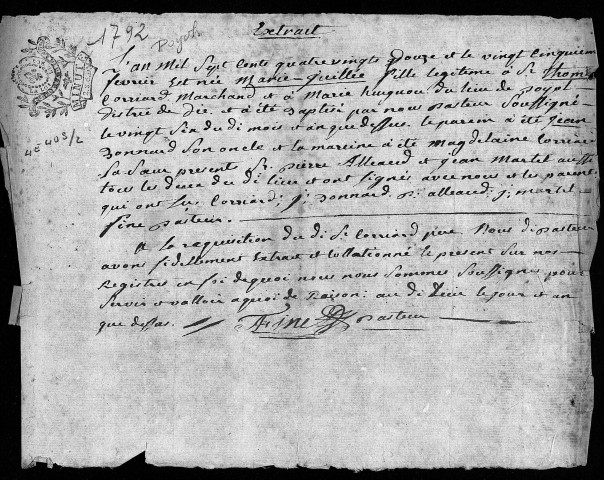 1792
Poyols
Extrait
MINUTE
4E 403/2
L'an Mil Sept Cents quatre vingts Douze et le vingt cinquiem
fevrier Est née Marie-Juillée fille legitime à Sr. Thomas
Corriard Marchand et à Marie hugnou du lieu de poyol
District de Die et a été Baptisé par nous pasteur Soussigné
le vingt Six du di mois et an que dessus. le parain a été Jean
Bonnard Son oncle et la marrine a été Magdelaine Corriard
Sa Sœur present Sr. pierre Alleaud et jean Martel aussi
tous les deux du di lieu et ont signés avec nous et les parants
qui ont Su. Corriard: j. Bonnard. p. alleaud: j: martel
fine pasteur.
A la requisition du di Sr. Corriard pere. Nous di pasteur
avons fidellement Extrait et Collationné le present Sur nos
Registres en foi de quoi nous nous Sommes Soussignés pour
Servir et valloir a quoi de Raison: au di Lieu le jour et an
que dessus. Fine pasteur